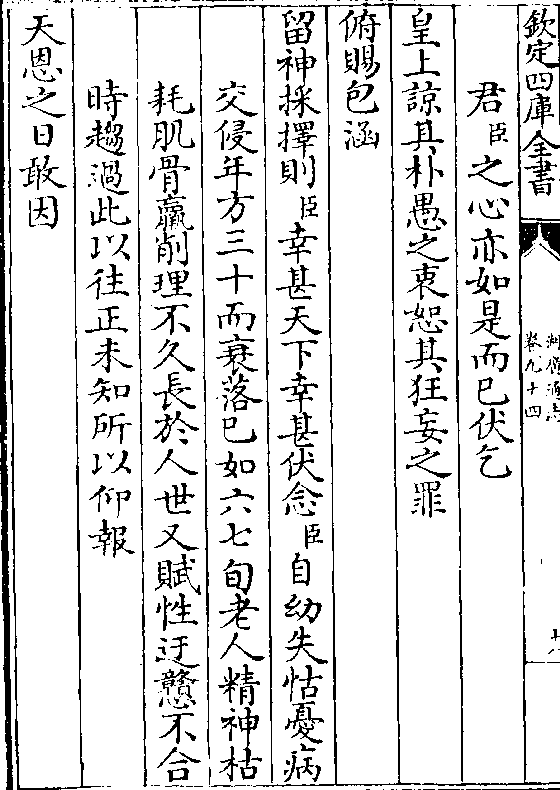 欽定四庫全書
卷九十四
君臣之心亦如是而已伏乞
皇上諒其朴愚之衷恕其狂妄之罪
俯賜包涵
留神採擇則臣幸甚天下幸甚伏念臣自幼失怙憂病
交侵年方三十而衰落已如六七旬老人精神枯
耗肌骨羸削理不久長於人世又賦性迂戇不合
時趨過此以往正未知所以仰報
天恩之日敢因